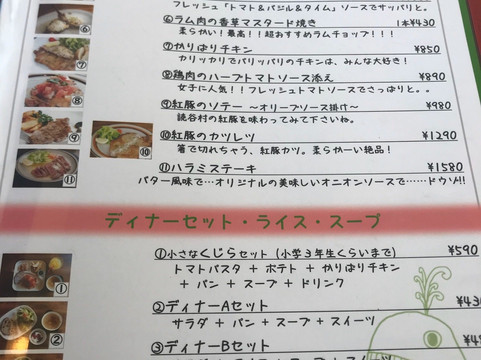 フレッシュ「トマト&バジル&タイム」ソースでサッパリと。
⑥ラム肉の香草マスタード焼き 1本¥430
柔らかい!最高!!超おすすめラムチョップ!!!
⑦やりばりチキン ¥850
パリッカリでパリッパリのチキンは、みんな大好き!
⑧鶏肉のハーブトマトソース添え ¥890
女子に人気!!フレッシュトマトソースでさっぱりと。。
⑨紅豚のソテー ~オリーブソース掛け~ ¥980
読谷村の紅豚を味わってみて下さいね。
⑩紅豚のカツレツ ¥1290
箸で切れちゃう、紅豚カツ。柔らかーい絶品!
⑪ハラミステーキ ¥1580
バター風味で…オリジナルの美味しいオニオンソースで……ドウゾ!!
ディナーセット・ライス・スープ
①小さなくじらセット(小学3年生くらいまで) ¥590
トマトパスタ + ポテト + やりばりチキン
+ パン + スープ + ドリンク
②ディナーAセット
サラダ + パン + スープ + スイーツ
③ディナーBセット
⑥
⑦
⑧
⑨
⑩
⑪
①
②